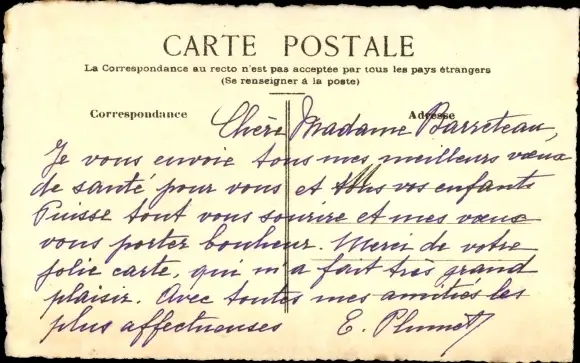 CARTE POSTALE
La Correspondance au recto n'est pas acceptée par tous les pays étrangers
(Se renseigner à la poste)
Correspondance
Adresse
Chère Madame Barreteau,
Je vous envoie tous mes meilleurs vœux
de santé pour vous et tous vos enfants
Puisse tout vous sourire et mes vœux
vous porter bonheur. Merci de votre
jolie carte, qui m'a fait très grand
plaisir. Avec toutes mes amitiés les
plus affectueuses E. Plumet